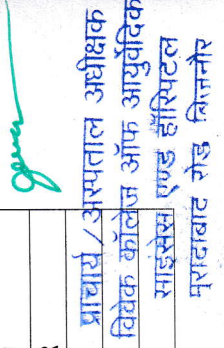 प्राचार्य / अस्पताल अधीक्षक
विवेक कॉलेज ऑफ आयुर्वेदिक
साइंसेस एण्ड हॉस्पिटल
मुरादाबाद रोड बिजनौर